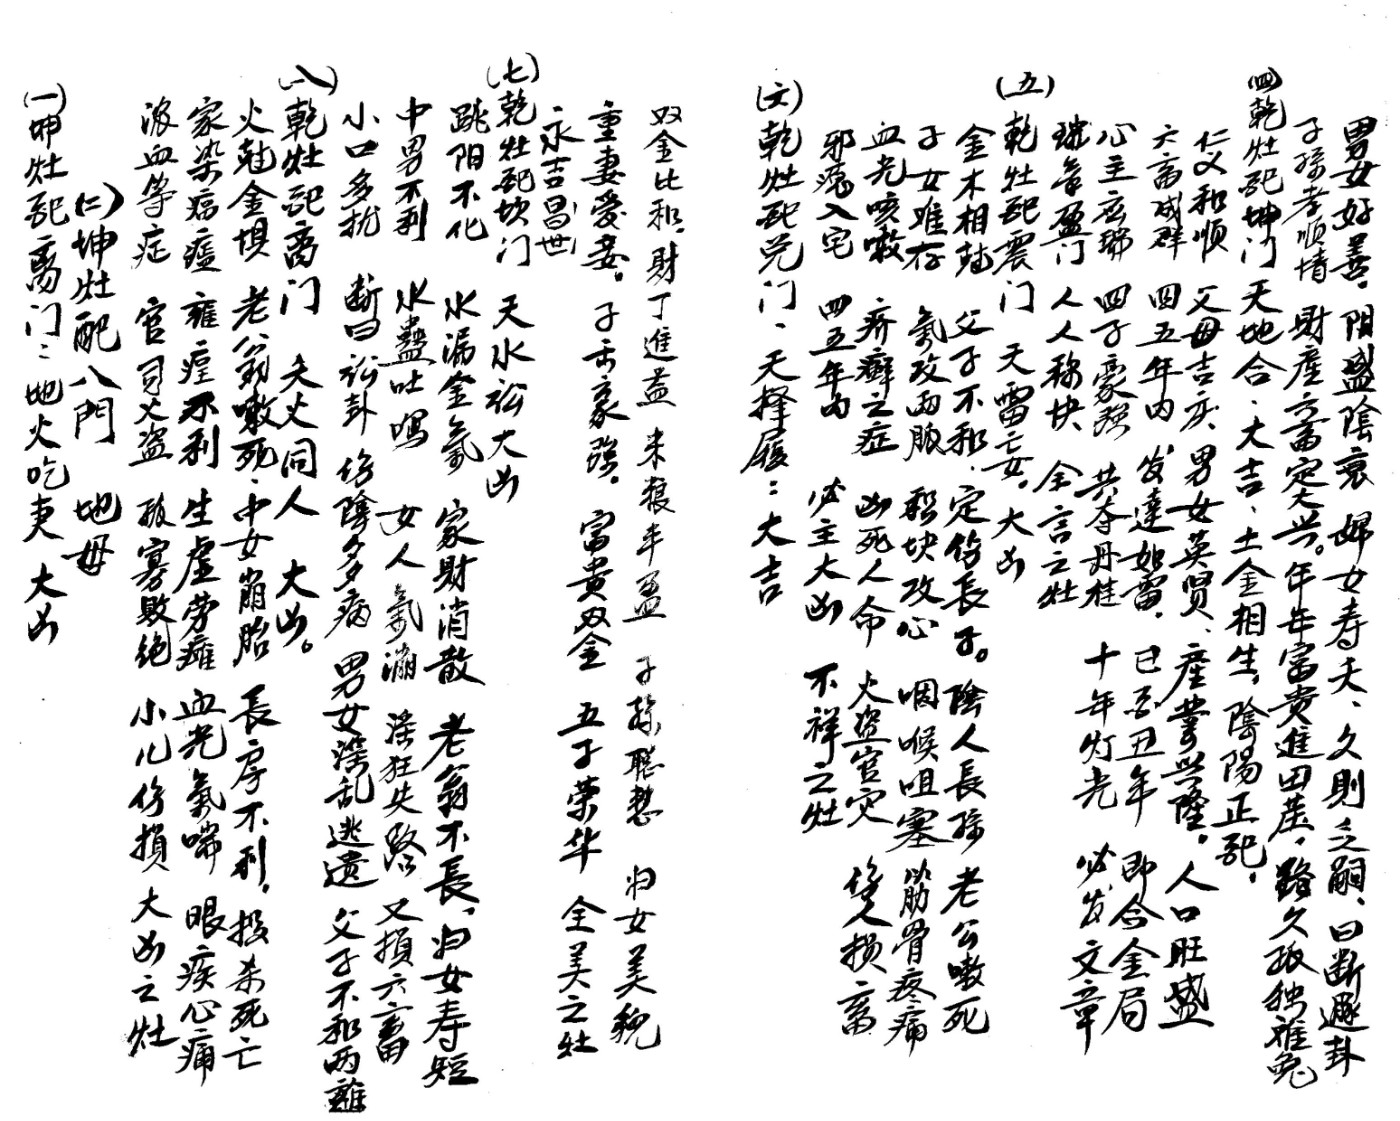 男女好善，阴盛陰衰 婦女寿夭、久則乏嗣、曰断遯卦
子孫孝順情 財産六畜定大兴。年年富贵進田産，路久孤独难免
(四)乾灶配坤门 天地合、大吉、土金相生，陰陽正配，
仁义和顺 父母吉庆 男女英贤、産業兴隆，人口旺盛
六畜成群 四五年内 发達如雷，巳酉丑年 即合金局
心主应瑞 四子豪强 共夺丹桂 十年灯光 必发文章
瑞气盈门 人人称快 全言之灶
(五)乾灶配震门 天雷亡女。大凶
金木相 父子不和、定伤長子。陰人長孫 老公嗽死
子女难存 氣攻两脇 积块攻心 咽喉咀塞 筋骨疼痛
血光咳嗽 疥癬之症 凶死人命 火盗官灾 伤人损畜
邪鬼入宅 四五年内 必主大凶 不祥之灶
(六)乾灶配兑门、天择履：大吉
双金比和，財丁進益 米粮丰盈 子孫聪慧 妇女美貌
重妻爱妾。子 豪强。富貴双全 五子荣华 全美之灶
永吉昌世
(七)乾灶配坎门 天水讼大凶
跳阳不化 水漏金氣 家財消散 老翁不長，妇女寿短
中男不利 水蠱吐 女人氣 淫狂失路 又損六畜
小口多扰 断曰讼卦 伤陰多病 男女淫乱逃遗 父子不和两離
(八)乾灶配离门 天火同人 大凶。
火尅金損 老翁嗽死、中女崩胎 長房不利，投杀死亡
家染病瘟 痽 不利 生虚劳瘫 血光氣喘 眼疾心痛
浓血等症 官司火盗 孤寡败绝 小儿伤損 大凶之灶
(仁)坤灶配八門 地母
(一)坤灶配离门：地火 大凶